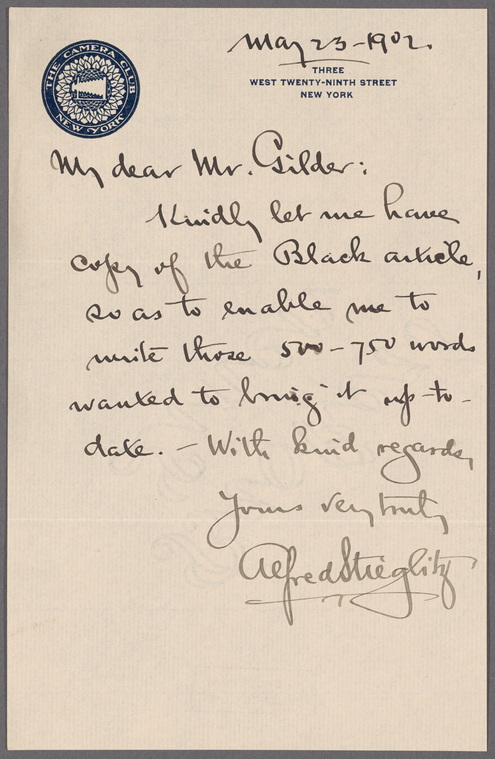 May 23 - 1902.
THE CAMERA CLUB
NEW YORK
THREE
WEST TWENTY-NINTH STREET
NEW YORK
My dear Mr. Gilder:
Kindly let me have
copy of the Black article,
so as to enable me to
write those 500-750 words
wanted to bring it up-to-
date. — With kind regards,
Yours very truly,
Alfred Stieglitz